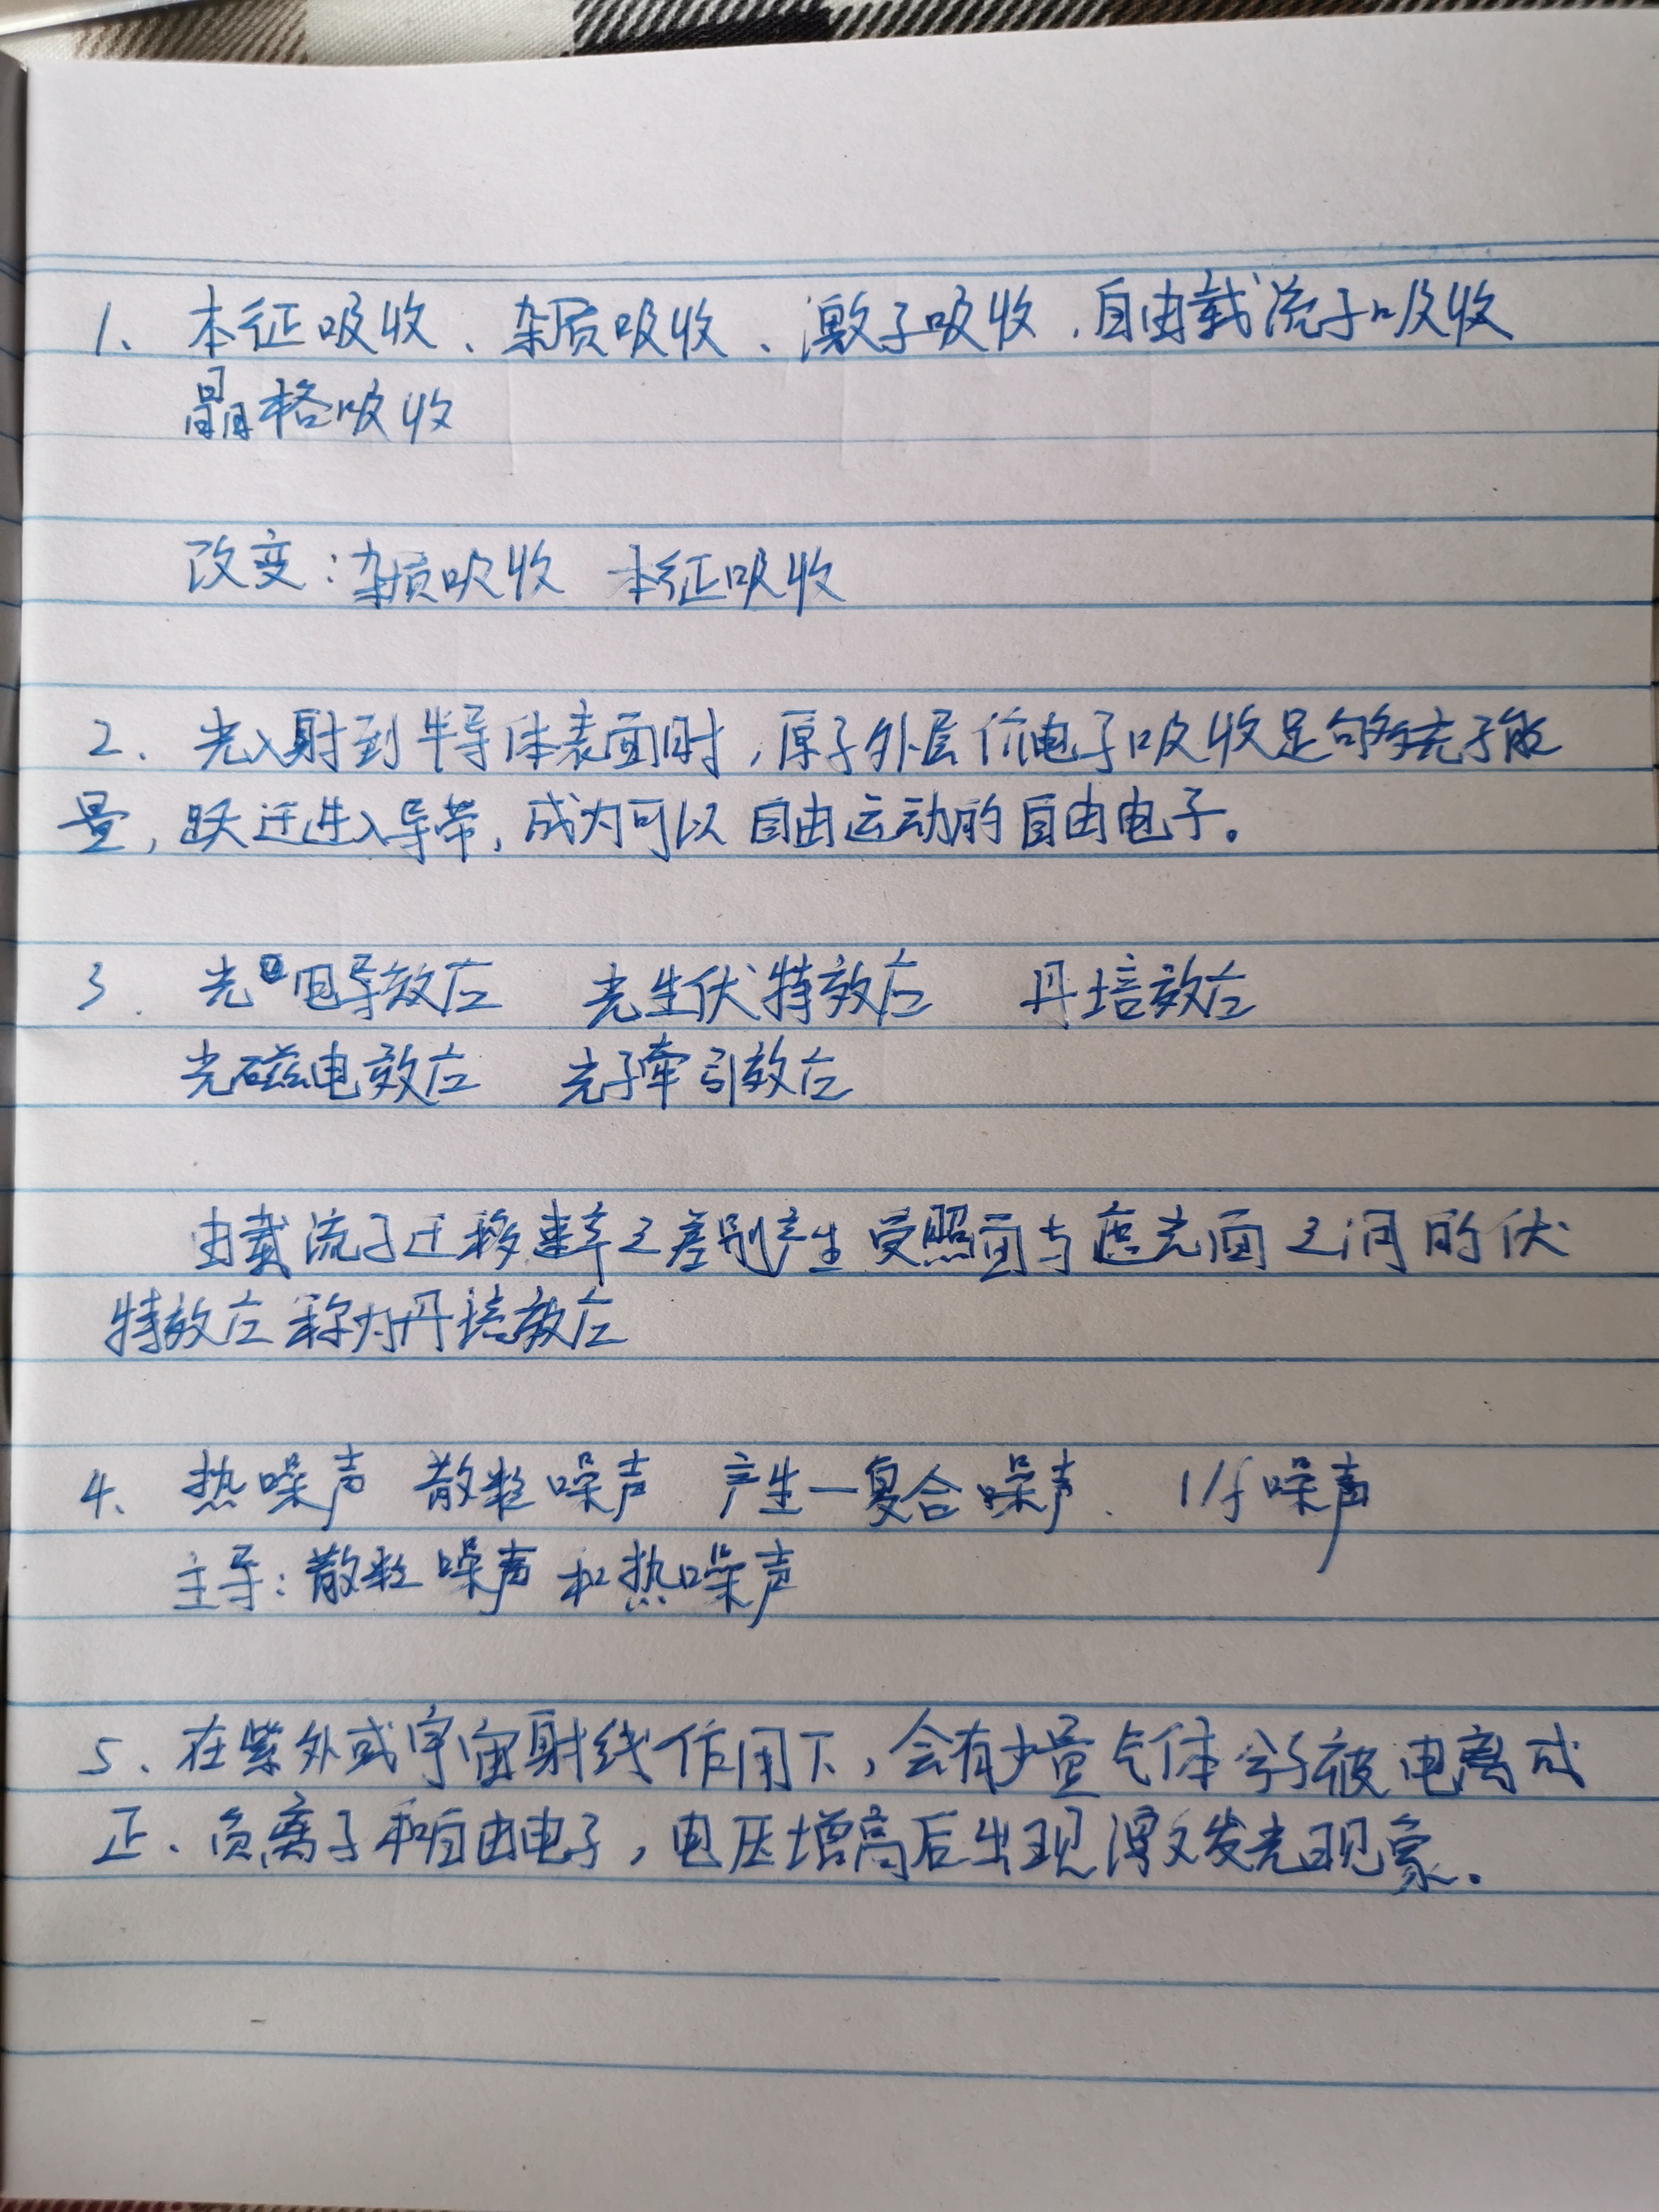 1、本征吸收、杂质吸收、激子吸收、自由载流子吸收
晶格吸收
改变：杂质吸收 本征吸收
2、光入射到半导体表面时，原子外层价电子吸收足够光子能
量，跃迁进入导带，成为可以自由运动的自由电子。
3、光电导效应 光生伏特效应 丹培效应
光磁电效应 光子牵引效应
由载流子迁移速率之差别产生受照面与遮光面之间的伏
特效应称为丹培效应
4、热噪声 散粒噪声 产生一复合噪声、 1/f噪声
主导：散粒噪声和热噪声
5、在紫外或宇宙射线作用下，会有少量气体分子被电离成
正、负离子和自由电子，电压增高后出现激发发光现象。